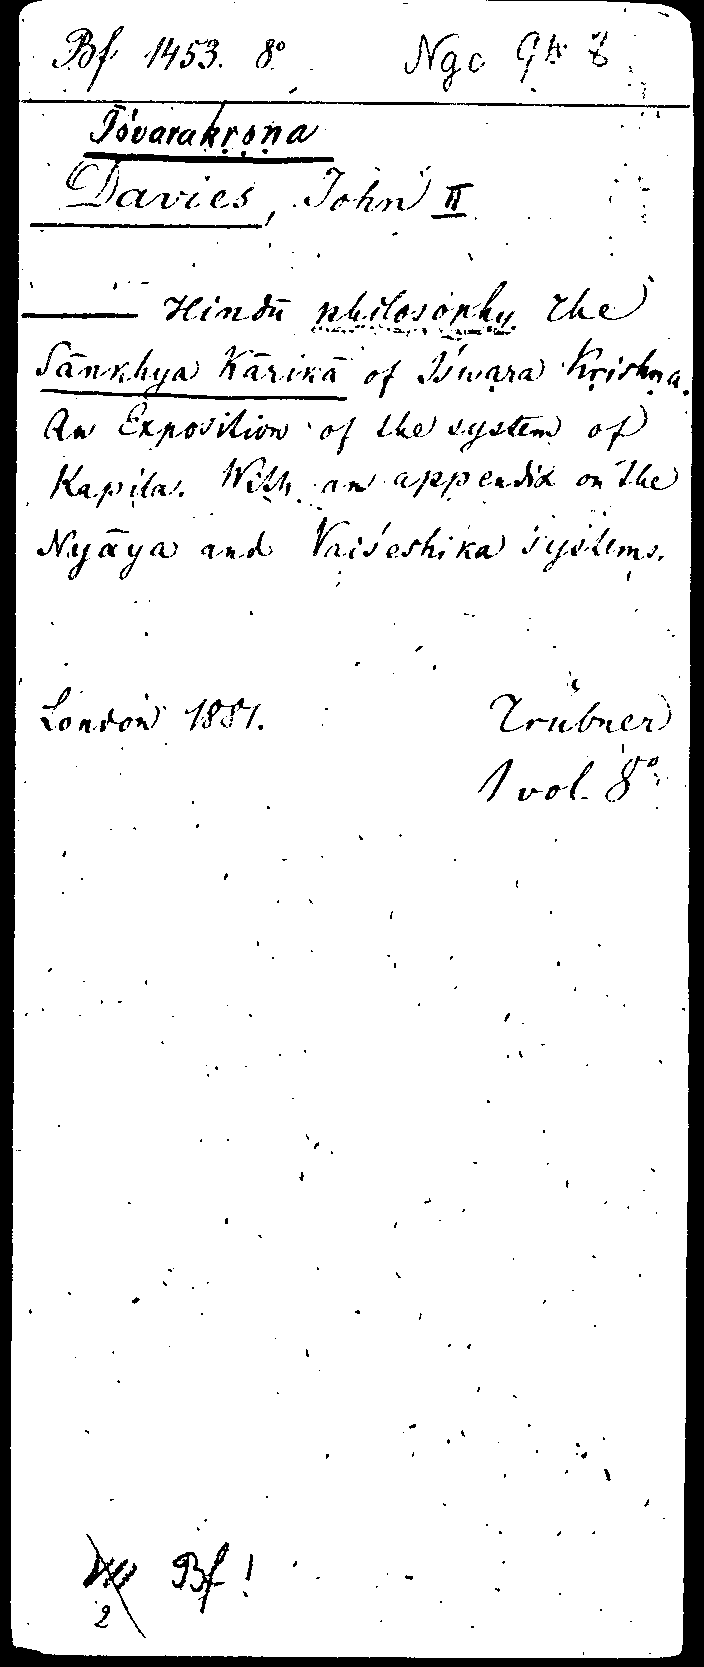 Bf 1453. 8°
Īśvarakṛṣṇa
Davies, John II
— Hindū philosophy The
Sānkhya Kārikā of Iśwara Kṛishṇa.
An Exposition of the system of
Kapila. With an appendix on the
Nyāya and Vaiśeshika systems.
London 1881. Trübner
1 vol. 8°
Bf!
2